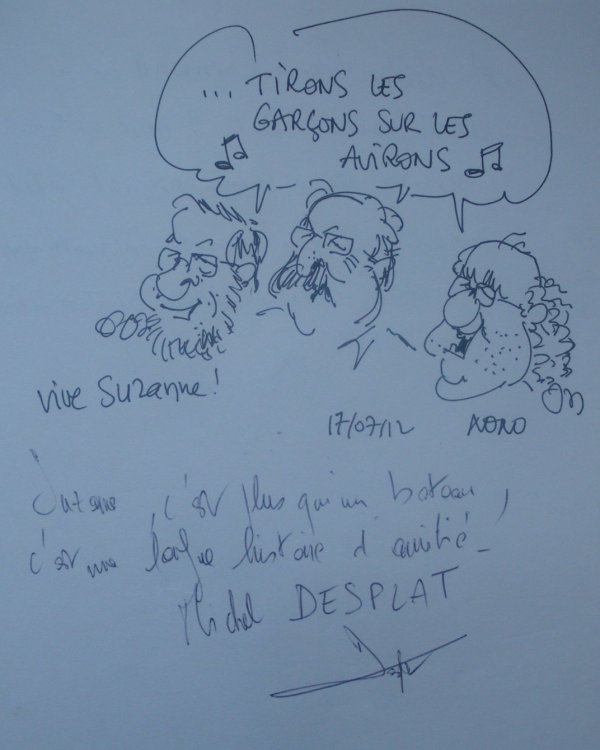 ... TIRONS LES
GARÇONS SUR LES
AVIRONS
vive Suzanne !
17/07/12 NONO
c'est plus qu'un bateau,
c'est une longue histoire d'amitié_
Michel DESPLAT